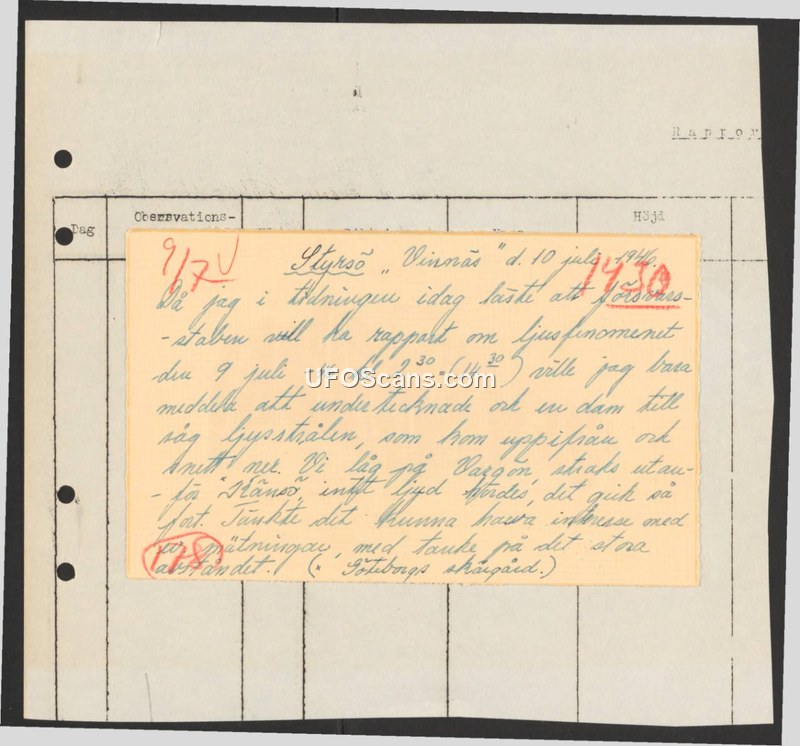 Rappor
Dag
Obsersvations-
Höjd
9/7 V
Styrsö „Vinnäs" d. 10 juli 1946.
1430
Då jag i tidningen idag läste att försvars-
-staben vill ha rapport om ljusfenomenet
den 9 juli kl. 2³⁰ (14³⁰) ville jag bara
meddela att undertecknade och en dam till
såg ljusstrålen, som kom uppifrån och
snett ner. Vi låg på Vargön, straks utan-
-för "Känsö", intet ljud hördes, det gick så
fort. Tänkte det kunna hava intresse med
ev. mätningar, med tanke på det stora
avståndet. (* Göteborgs skärgård.)
148
UFOScans.com